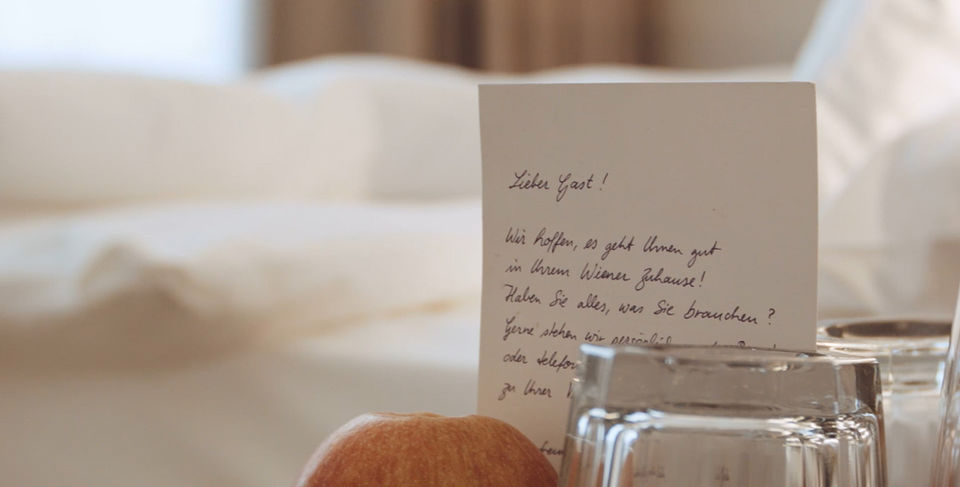 Lieber Gast!
Wir hoffen, es geht Ihnen gut
in Ihrem Wiener Zuhause!
Haben Sie alles, was Sie brauchen?
Gerne stehen wir persönlich
oder
zu Ihrer